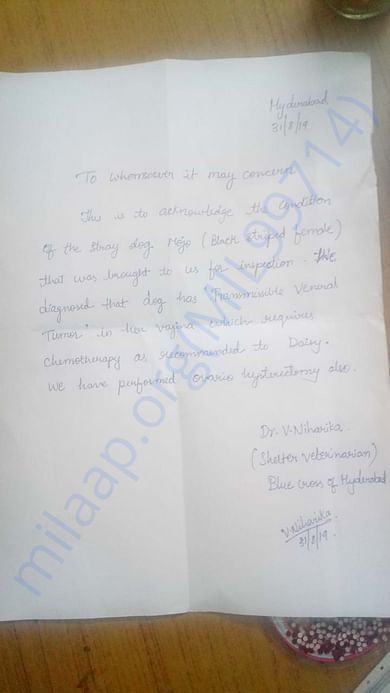 Hyderabad
31/8/19
To whomsoever it may concern
This is to acknowledge the condition
of the stray dog Mojo (Black striped female)
that was brought to us for inspection. We
diagnosed that dog has Transmissible Veneral
Tumor' in her vagina which requires
chemotherapy as recommended to Daisy.
We have performed ovario hysterectomy also.
Dr. V. Niharika.
(Shelter Veterinarian)
Blue Cross of Hyderabad
V. Niharika.
31/8/19.
milaap.org(MIL99714)